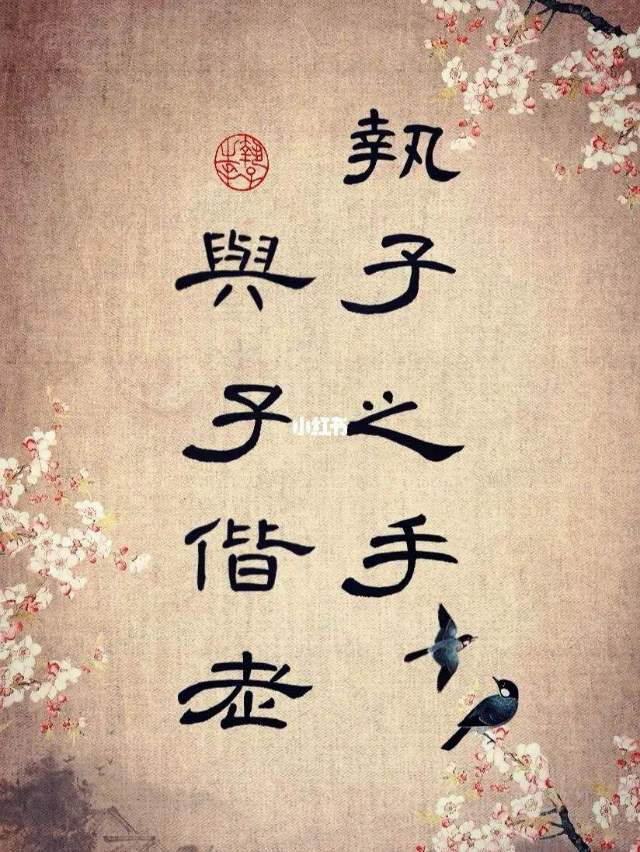 執子之手
與子偕老
小红书